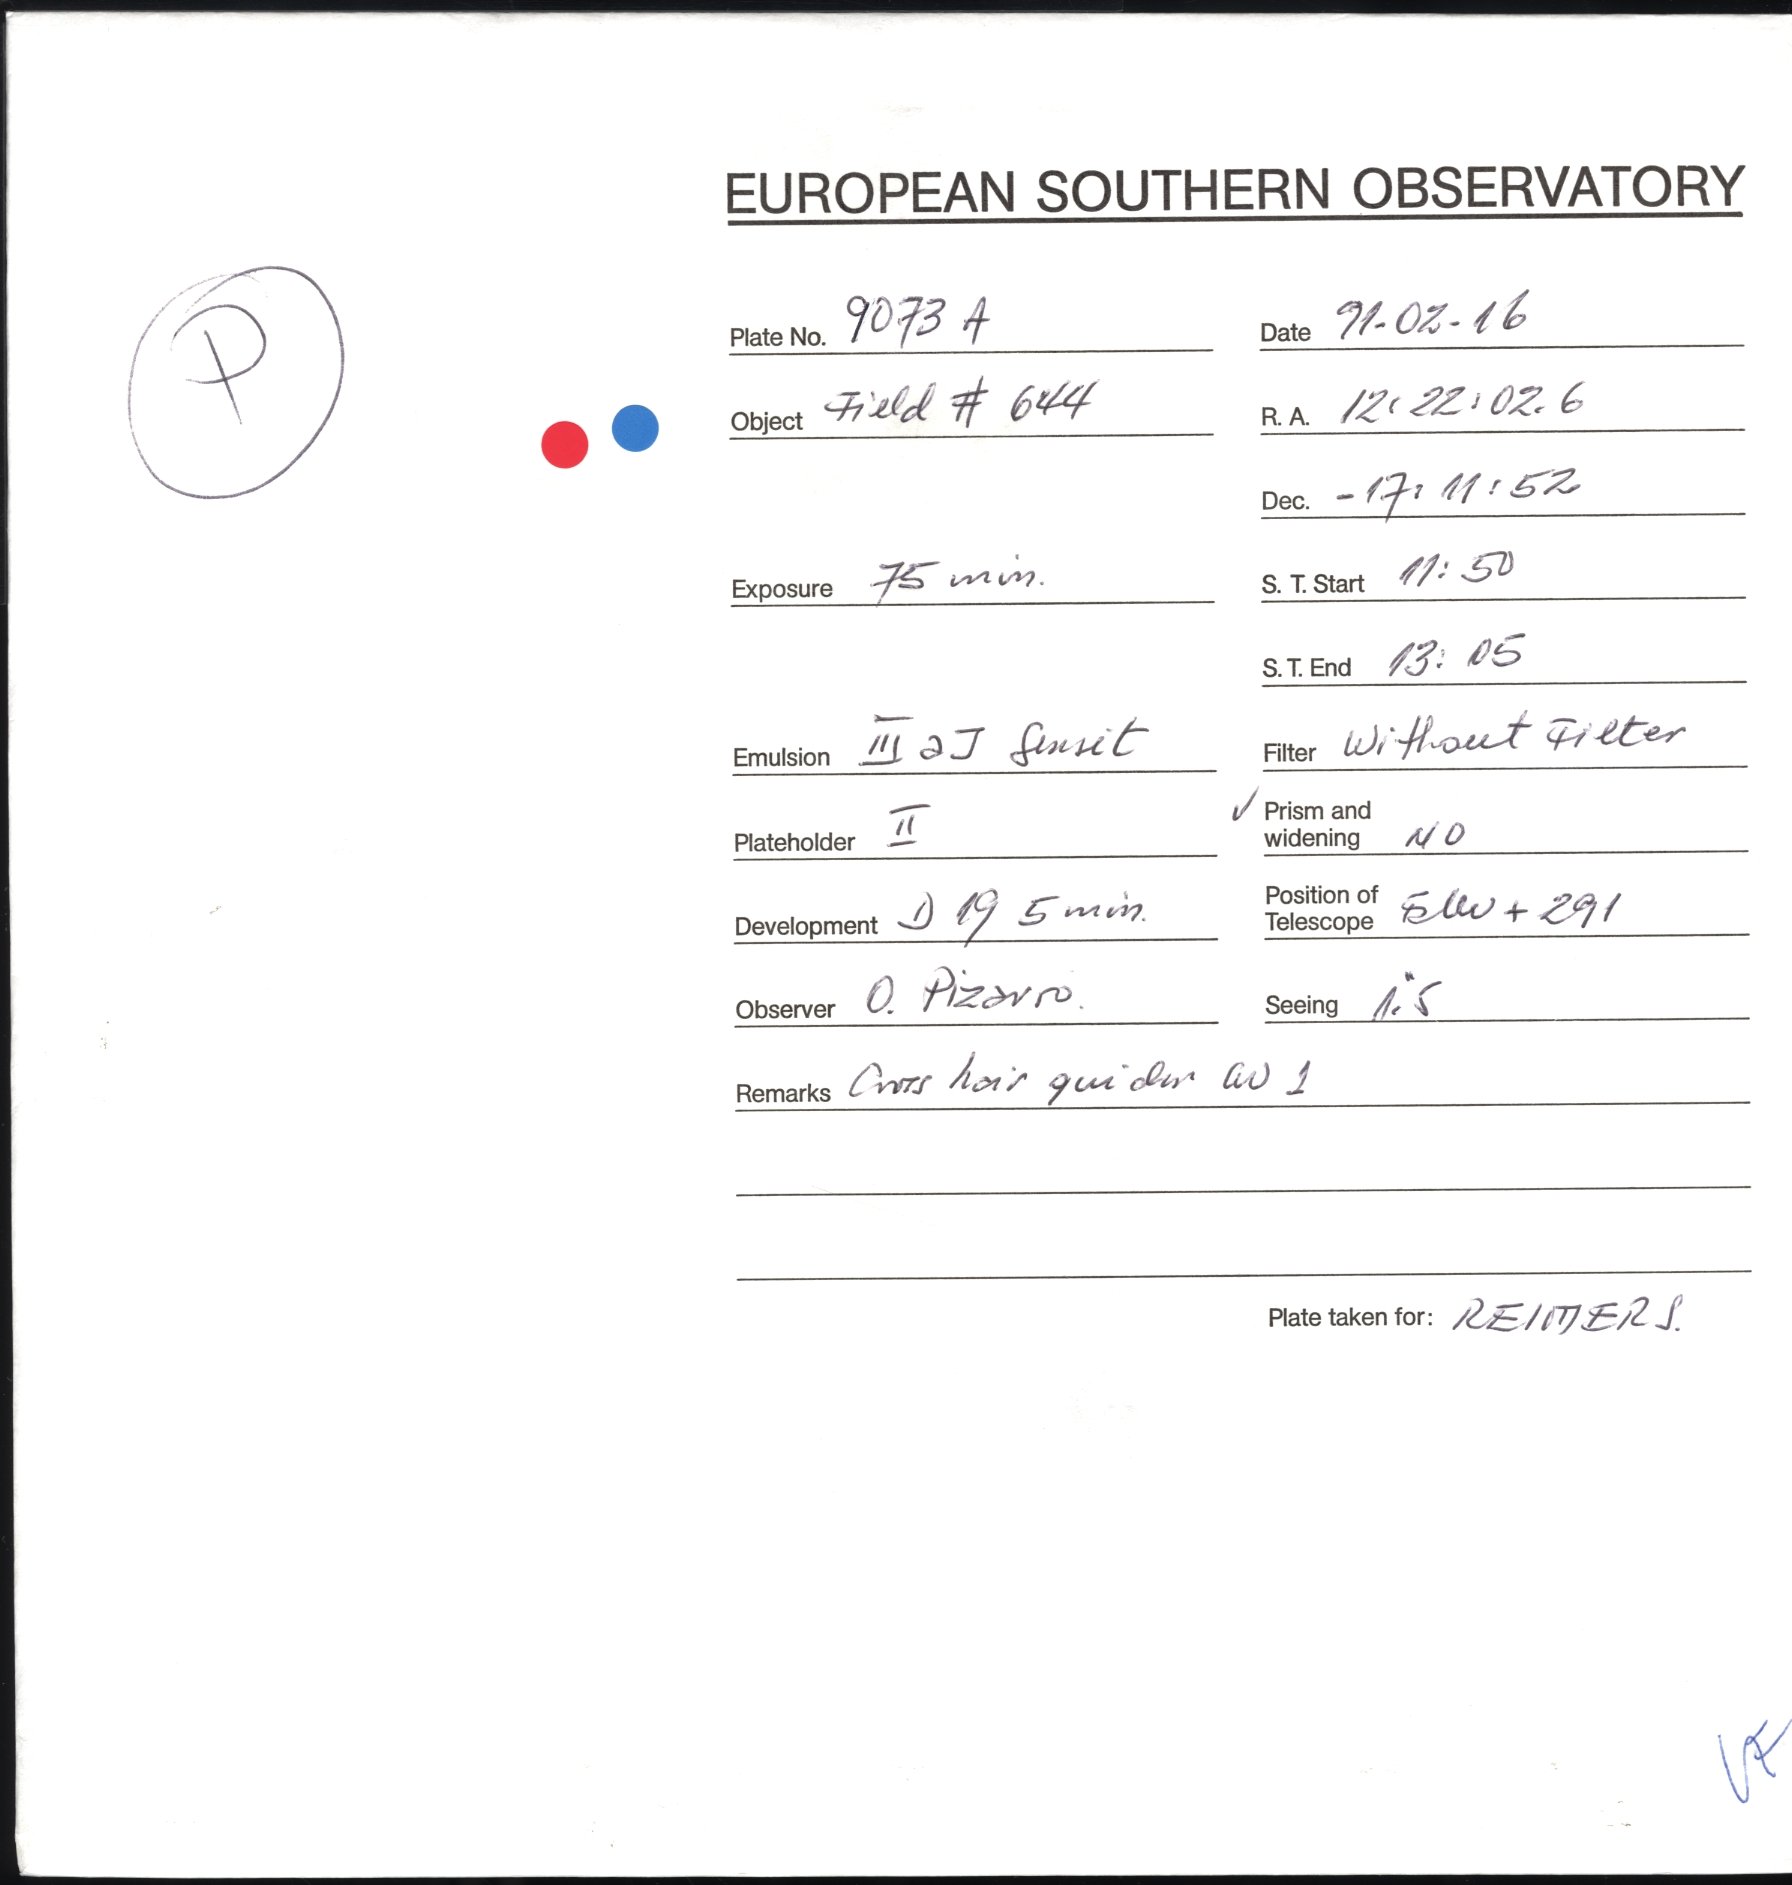 EUROPEAN SOUTHERN OBSERVATORY
P
Plate No. 9073 A
Date 91-02-16
Object Field # 644
R. A. 12:22:02.6
Dec. -17:11:52
Exposure 75 min.
S. T. Start 11:50
S. T. End 13:05
Emulsion III aJ Sensit
Filter Without Filter
Plateholder II
✓ Prism and widening NO
Development D 19 5 min.
Position of Telescope + 291
Observer O. Pizarro.
Seeing 1."5
Remarks Cross hair guider 1
Plate taken for: REIMERS.